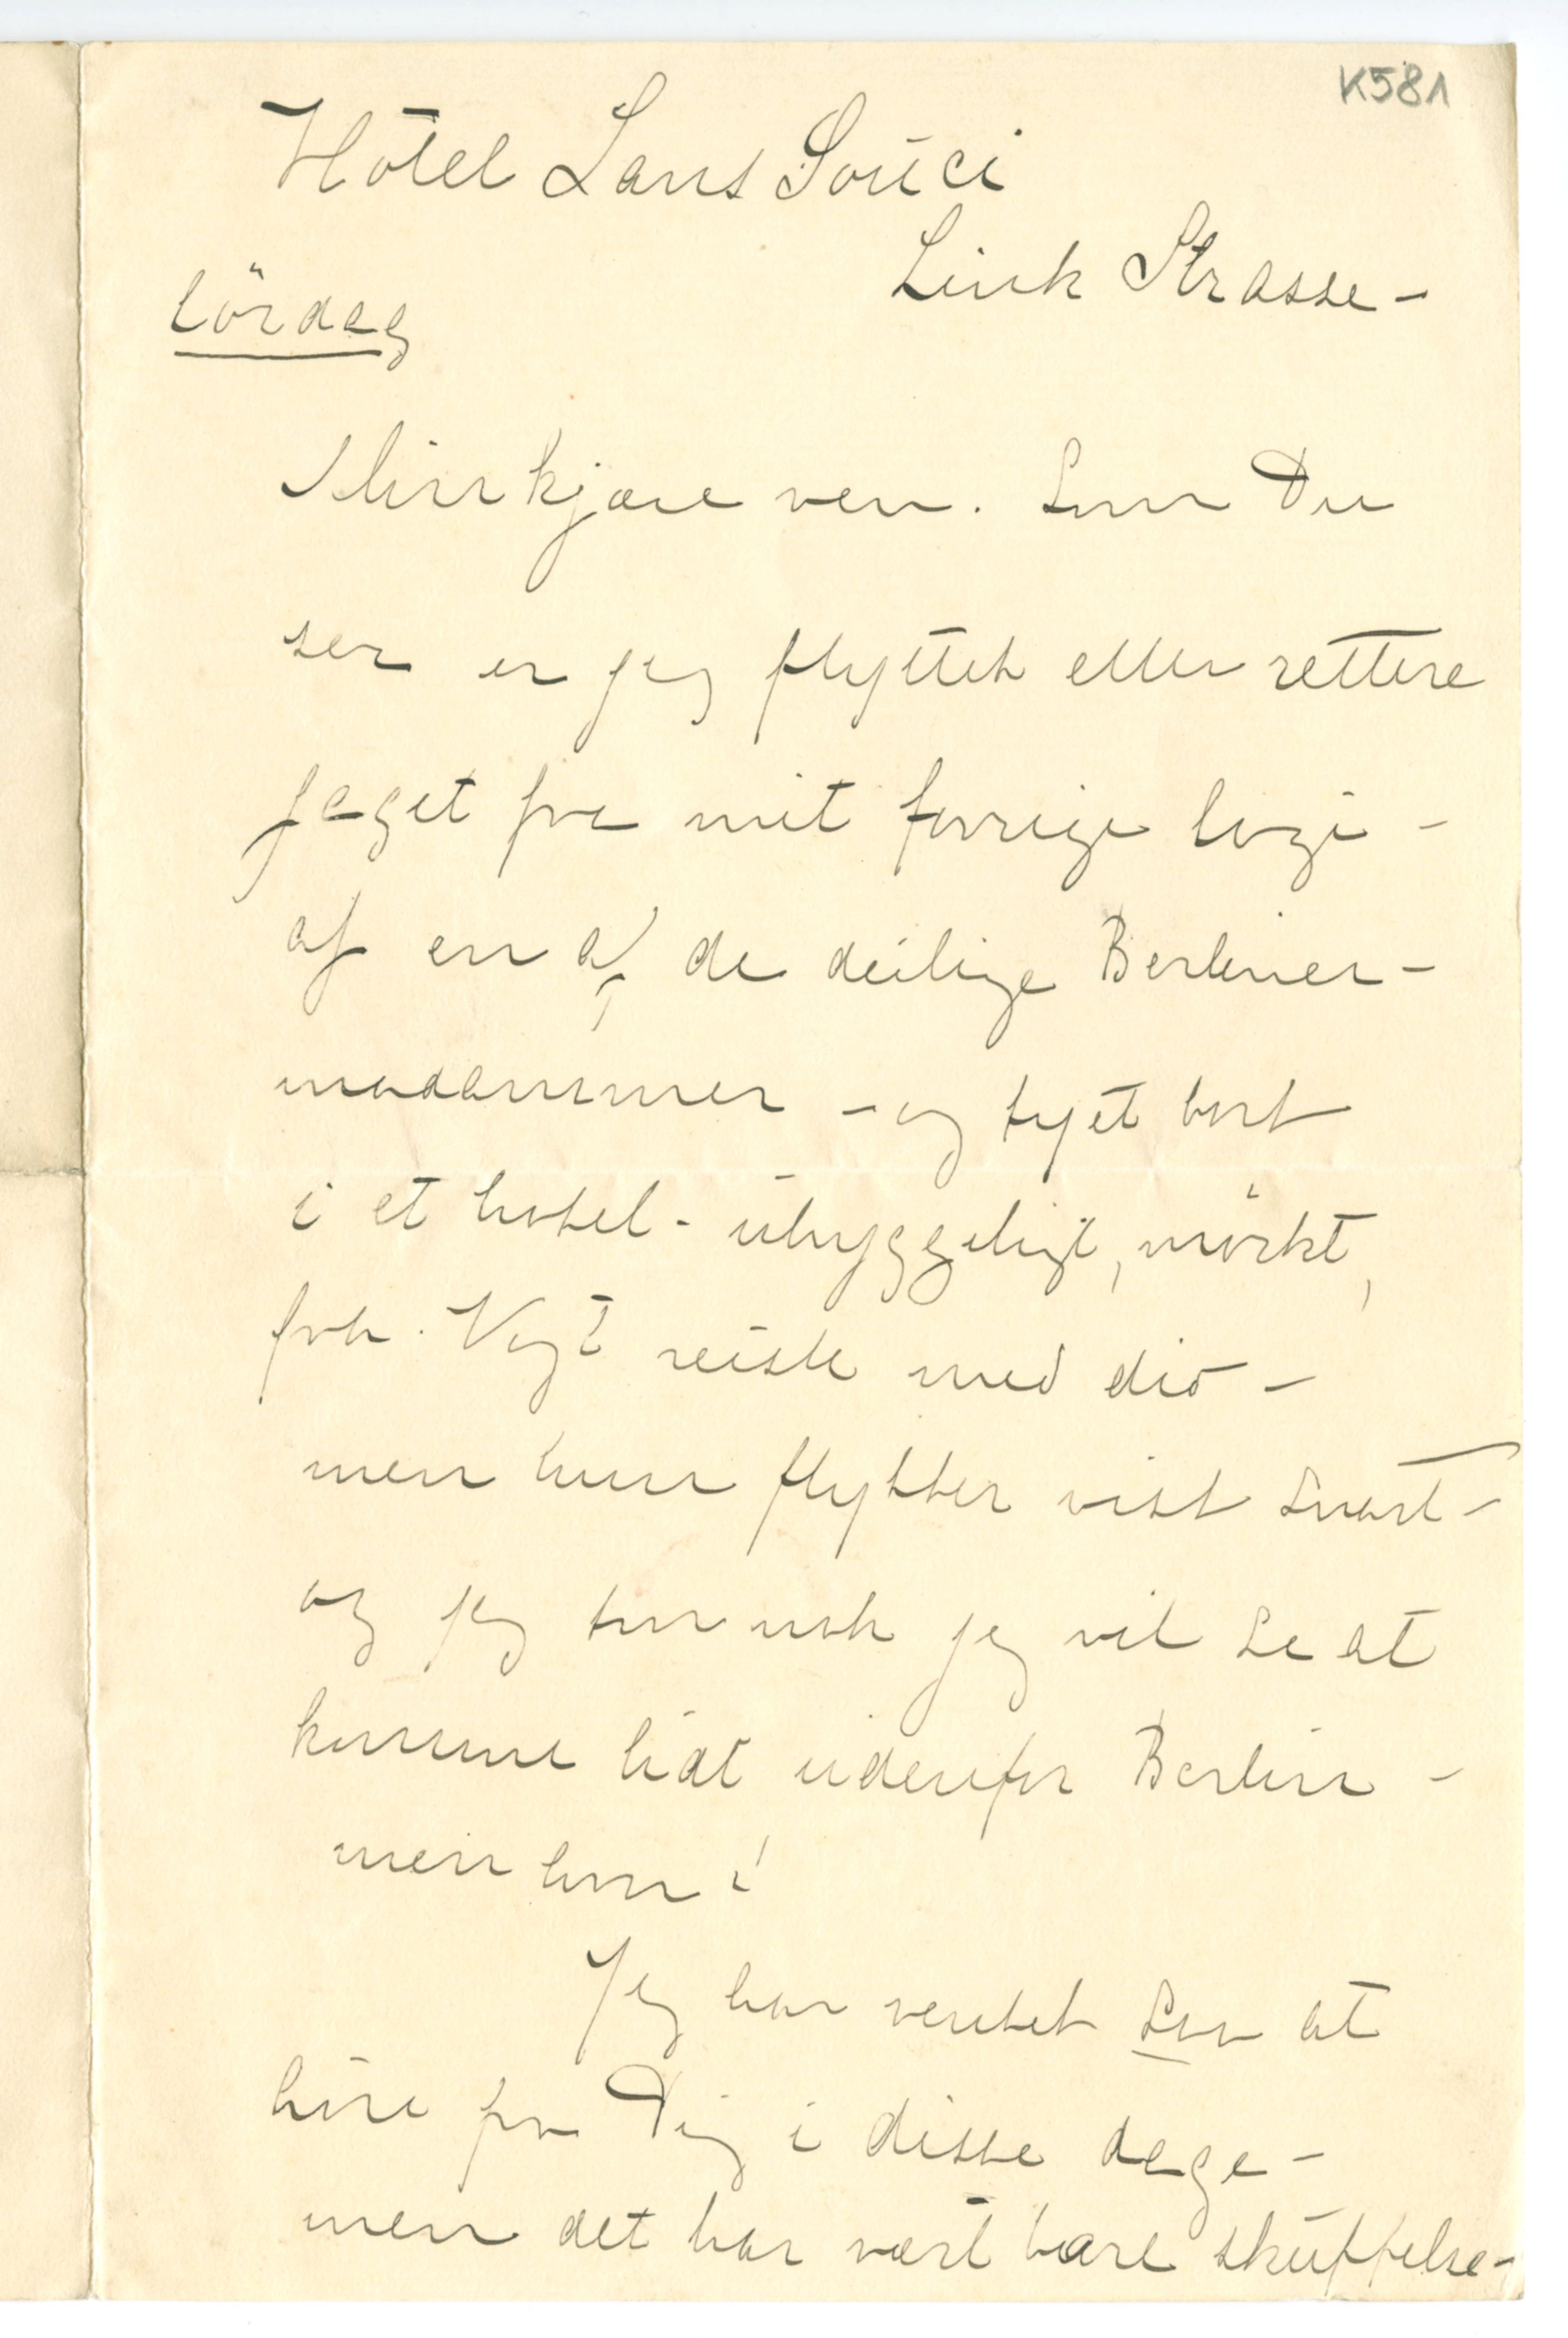 K581
Hôtel Sans Souci
Link Strasse –
lördag
Min kjære ven. Som Du
ser er jeg flyttet eller rettere
jaget fra mit forrige logi –
af en af de deilige Berliner–
madammer – og tyet bort
i et hotel – uhyggeligt, mörkt,
Vogt reiste med did –
men hun flytter vist snart –
og jeg tror nok jeg vil se at
komme lidt udenfor Berlin –
men hvor!
Jeg har ventet som at
höre fra Dig i disse dage –
men det har vært bare skuffelse –